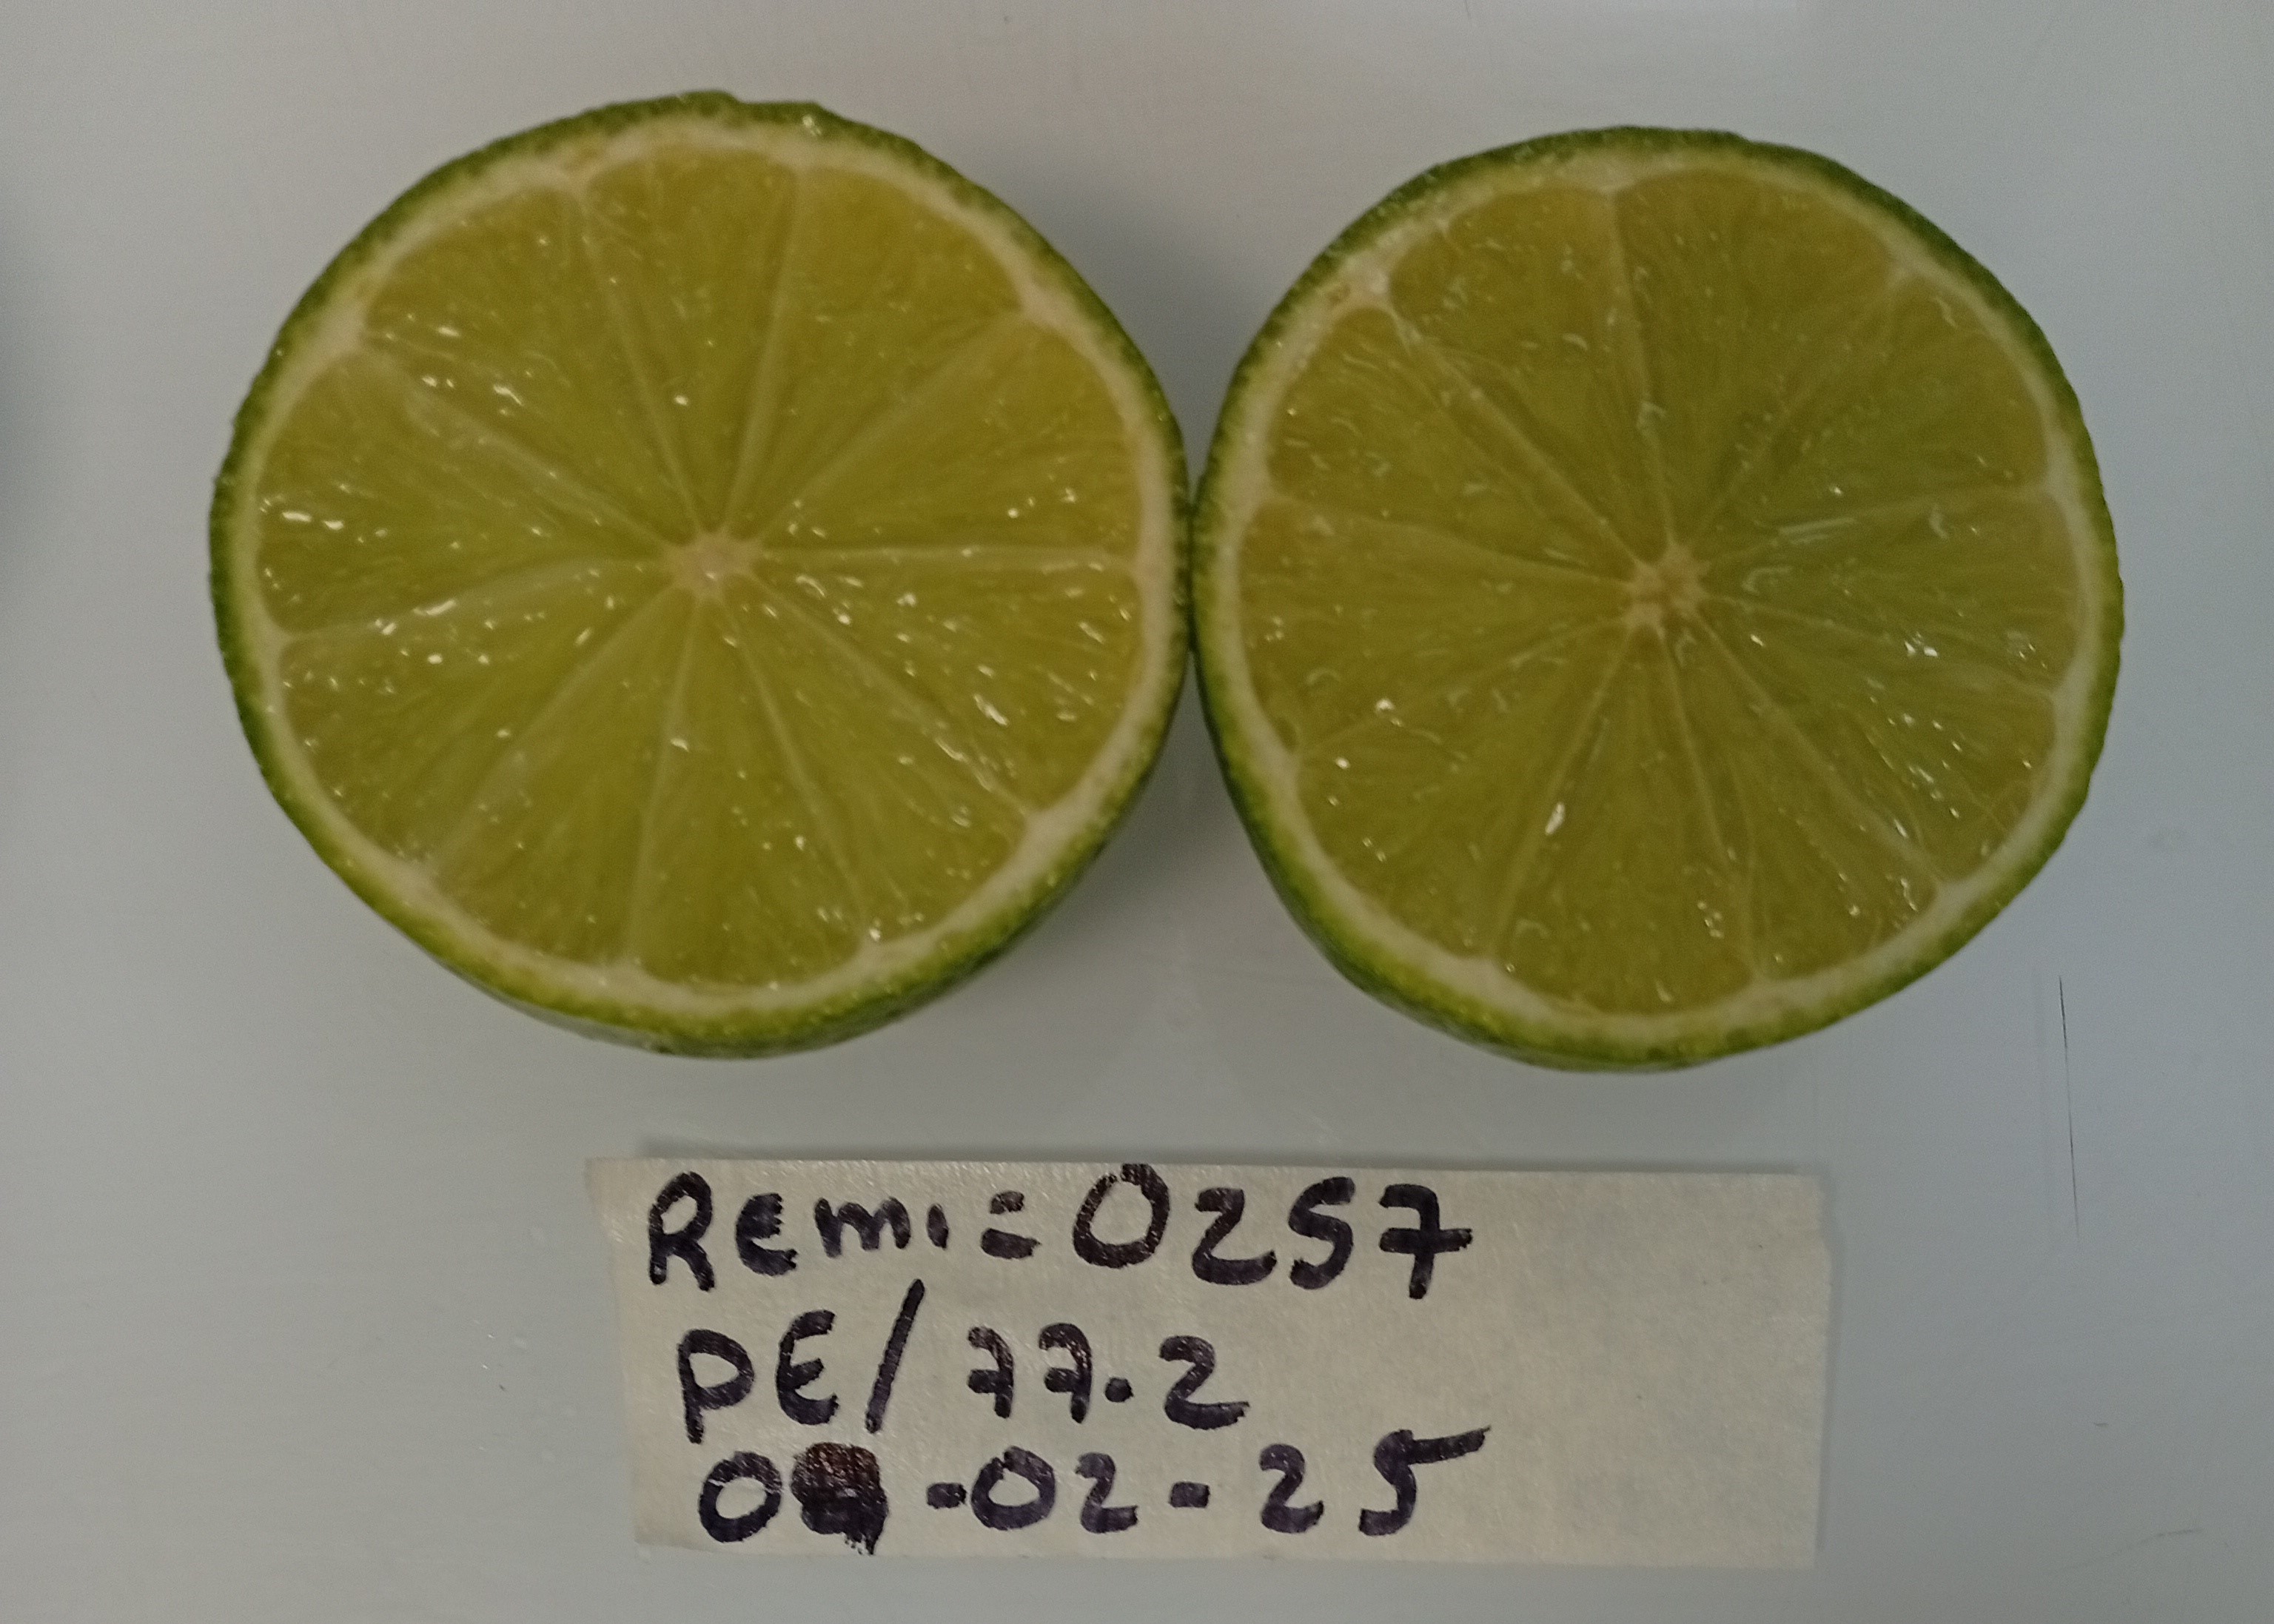 Remi=0257
PE/77.2
-02-25